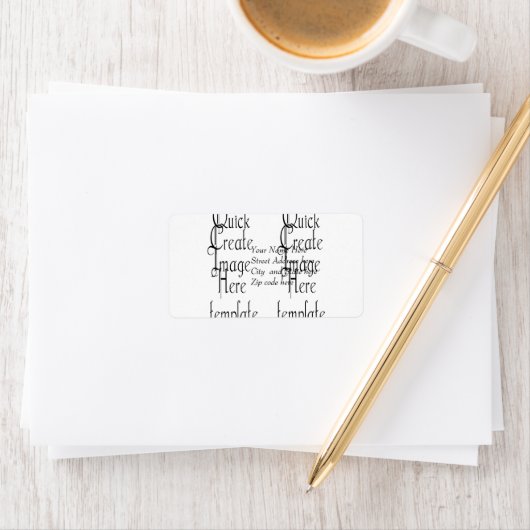 Quick Quick
Create Create
Image Image
Here Here
template template
Your Name Here
Street Address here
City and
Zip code here